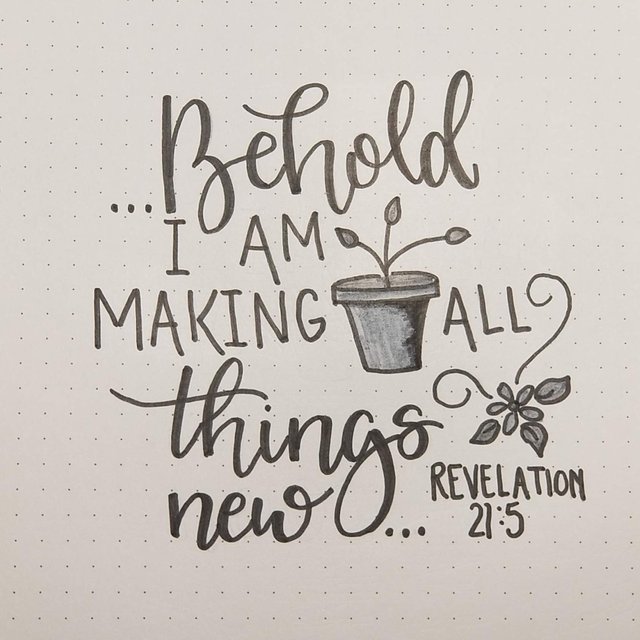 ...Behold
I AM
MAKING ALL
things
new...
REVELATION
21:5